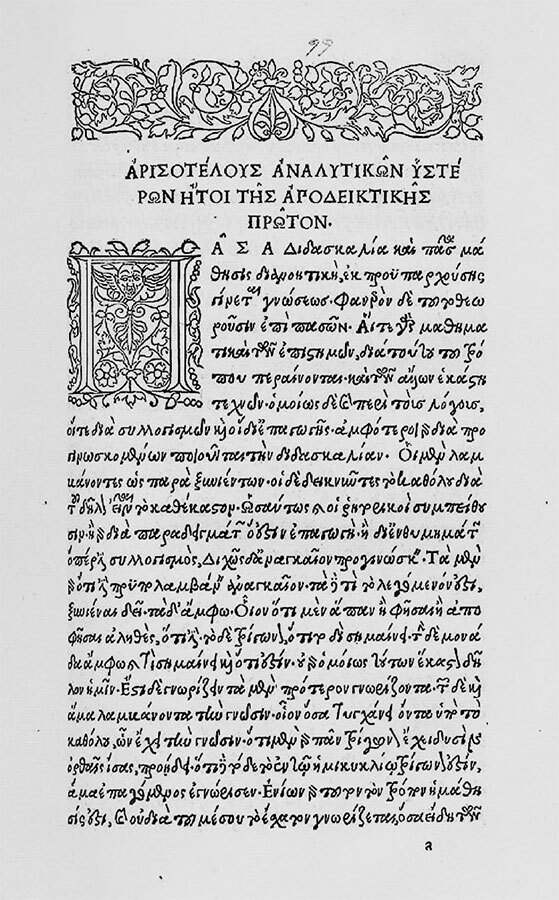 99
ἈΡΙΣΟΤΈΛΟΥΣ ἈΝΑΛΥΤΙΚΩ͂Ν ὙΣΤΈ
ΡΩΝ ἬΤΟΙ ΤΗ͂Σ ἈΡΟΔΕΙΚΤΙΚΗ͂Σ
ΠΡΩ͂ΤΟΝ·
ΠΑ͂ΣΑ διδασκαλία καὶ πᾶσα μά
θησις διανοητικὴ, ἐκ προϋπαρχούσης
γίνεται γνώσεως· Φανερὸν δὲ τοῦτο θεω
ροῦσιν ἐπὶ πασῶν· Αἵτε γὰρ μαθημα
τικαὶ τῶν ἐπιστημῶν, διὰ τούτου τοῦ τρό
που περαίνονται· καὶ τῶν ἄλλων ἑκάστη
τεχνῶν· ὁμοίως δὲ καὶ περὶ τοὺς λόγους,
οἵτε διὰ συλλογισμῶν καὶ οἱ δι' ἐπαγωγῆς· ἀμφότεροι γὰρ διὰ προ
γινωσκομένων ποιοῦνται τὴν διδασκαλίαν· Οἱ μὲν λαμ
βάνοντες ὡς παρὰ ξυνιέντων· οἱ δὲ δεικνύντες τὸ καθόλου διὰ
τοῦ δῆλον εἶναι τὸ καθέκαστον· Ὡσαύτως καὶ οἱ ῥητορικοὶ συμπείθου
σιν· ἢ γὰρ διὰ παραδειγμάτων ὅ ἐστιν ἐπαγωγὴ· ἢ δι' ἐνθυμημάτων
ὅπερ ἐστὶ συλλογισμὸς, Διχῶς δ' ἀναγκαῖον προγινώσκειν· Τὰ μὲν
γὰρ ὅτι ἔστι προϋπολαμβάνειν ἀναγκαῖον· τὰ δὲ τί τὸ λεγόμενόν ἐστι,
ξυνιέναι δεῖ· τὰ δ' ἄμφω· Οἷον ὅτι μὲν ἅπαν ἢ φῆσαι ἢ ἀπο
φῆσαι ἀληθὲς, ὅτι ἔστι· τὸ δὲ τρίγωνον, ὅτι τοδὶ σημαίνει· τὴν δὲ μονά
δα ἄμφω καὶ τί σημαίνει καὶ ὅτι ἔστιν· οὐ γὰρ ὁμοίως τούτων ἕκαστον δῆ
λον ἡμῖν· Ἔστι δὲ γνωρίζειν τὰ μὲν πρότερον γνωρίζοντα· τῶν δὲ καὶ
ἅμα λαμβάνοντα τὴν γνῶσιν· οἷον ὅσα τυγχάνει ὄντα ὑπὸ τὸ
καθόλου, ὧν ἔχει τὴν γνῶσιν· ὅτι μὲν γὰρ πᾶν τρίγωνον ἔχει δυσὶν
ὀρθαῖς ἴσας, προῄδει· ὅτι δὲ τόδε τὸ ἐν τῷ ἡμικυκλίῳ τρίγωνόν ἐστιν,
ἅμα ἐπαγόμενος ἐγνώρισεν· Ἐνίων γὰρ τοῦτον τὸν τρόπον ἡ μάθη
σίς ἐστι, καὶ οὐ διὰ τοῦ μέσου τὸ ἔσχατον γνωρίζεται, ὅσα ἤδη τῶν
a